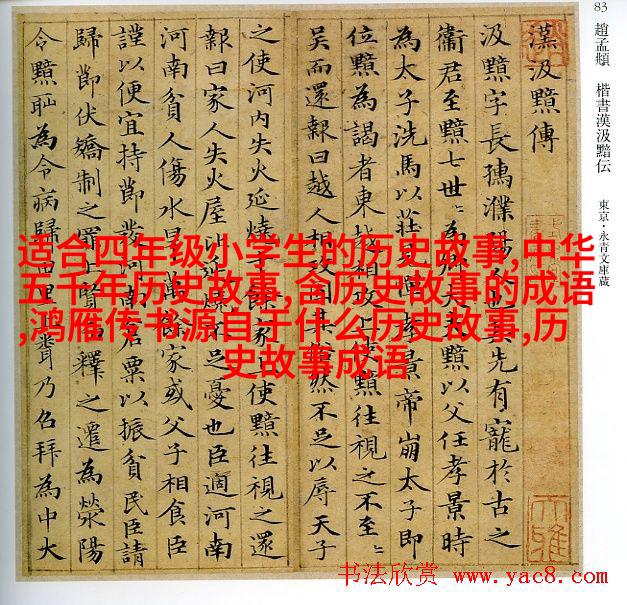 83
趙孟頫 楷書漢汲黯伝
東京・永青文庫蔵
漢汲黯傳
汲黯字長孺濮陽人也其先有寵於古之
衛君至黯七世〻為卿大夫黯以父任孝景時
為太子洗馬以莊見憚孝景帝崩太子即
位黯為謁者東越相攻上使黯往視之不至〻
吳而還報曰越人相攻固其俗然不足以辱天子
之使河內失火延燒千餘家上使黯往視之還
報曰家人失火屋比延燒不足憂也臣適河南
河南貧人傷水旱萬餘家或父子相食臣
謹以便宜持節發河南倉粟以振貧民臣請
歸節伏矯制之罪上賢而釋之遷為滎陽
令黯恥為令病歸田里上聞乃召拜為中大
适合四年级小学生的历史故事,中华
五千年历史故事,含历史故事的成语
,鸿雁传书源自于什么历史故事,历
史故事成语
书法欣赏 www.yac8.com